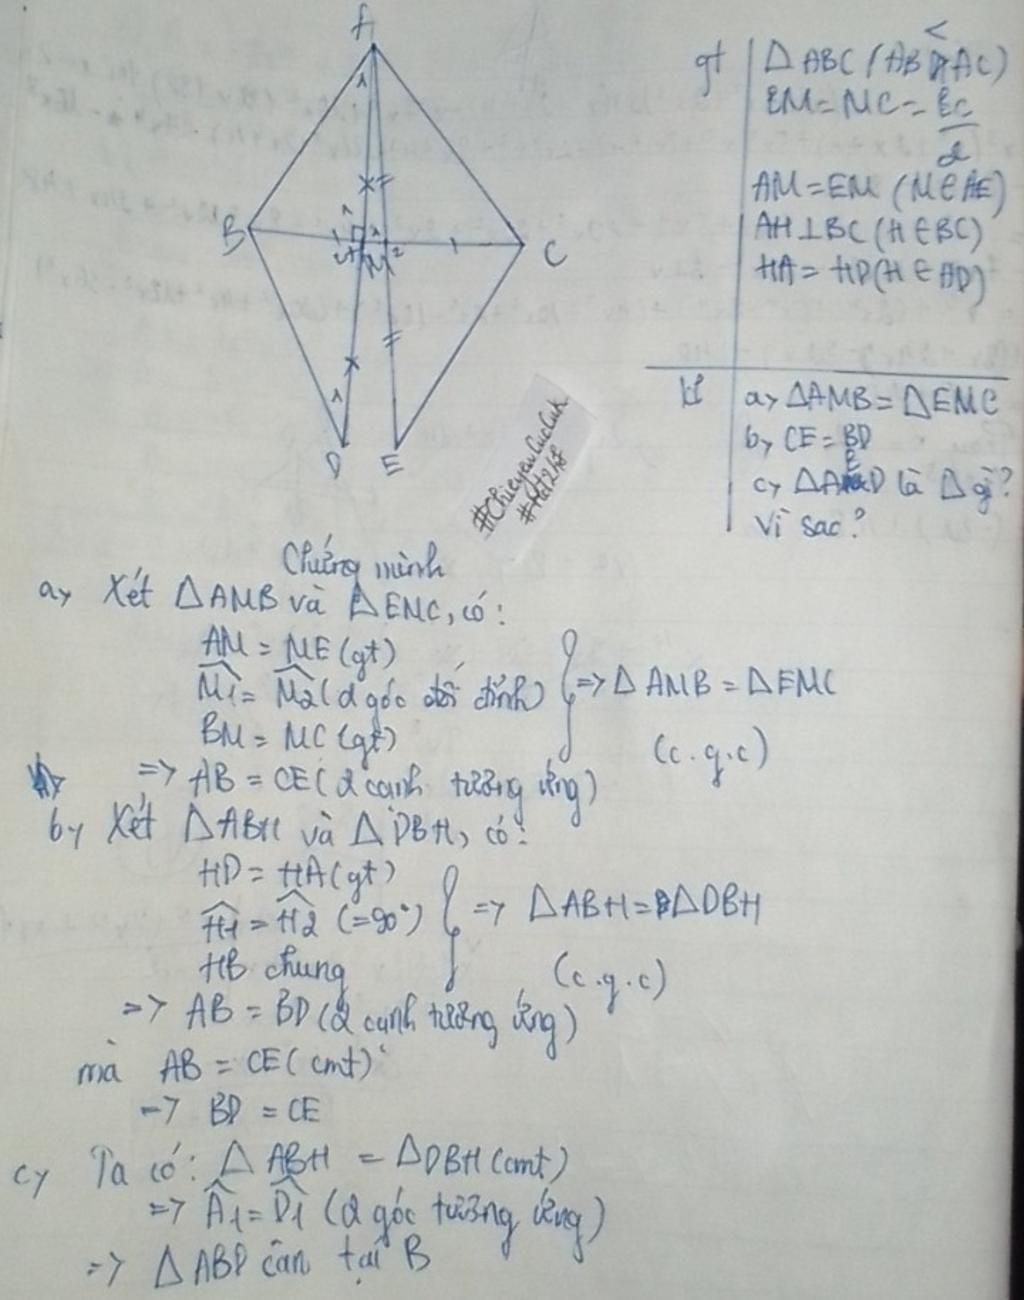 A
B
C
D E
gt
<
△ABC (AB AC)
BM = MC = BC
2
AM = EM (M ∈ AE)
AH ⊥ BC (H ∈ BC)
HA = HD (H ∈ AD)
kl
a, △AMB = △EMC
b, CE = BD
c, △ABD là △ gì?
Vì sao?
#ChieyeuCucCuk
#Hd2kf
Chứng minh
a, Xét △AMB và △EMC, có:
AM = ME (gt)
M̂1 = M̂2 (2 góc đối đỉnh)
BM = MC (gt)
=> △AMB = △EMC
(c.g.c)
=> AB = CE (2 cạnh tương ứng)
b, Xét △ABH và △DBH, có:
HD = HA (gt)
Ĥ1 = Ĥ2 (=90°)
HB chung
=> △ABH = △DBH
(c.g.c)
=> AB = BD (2 cạnh tương ứng)
mà AB = CE (cmt)
=> BD = CE
c, Ta có: △ABH = △DBH (cmt)
=> Â1 = D̂1 (2 góc tương ứng)
=> △ABD cân tại B